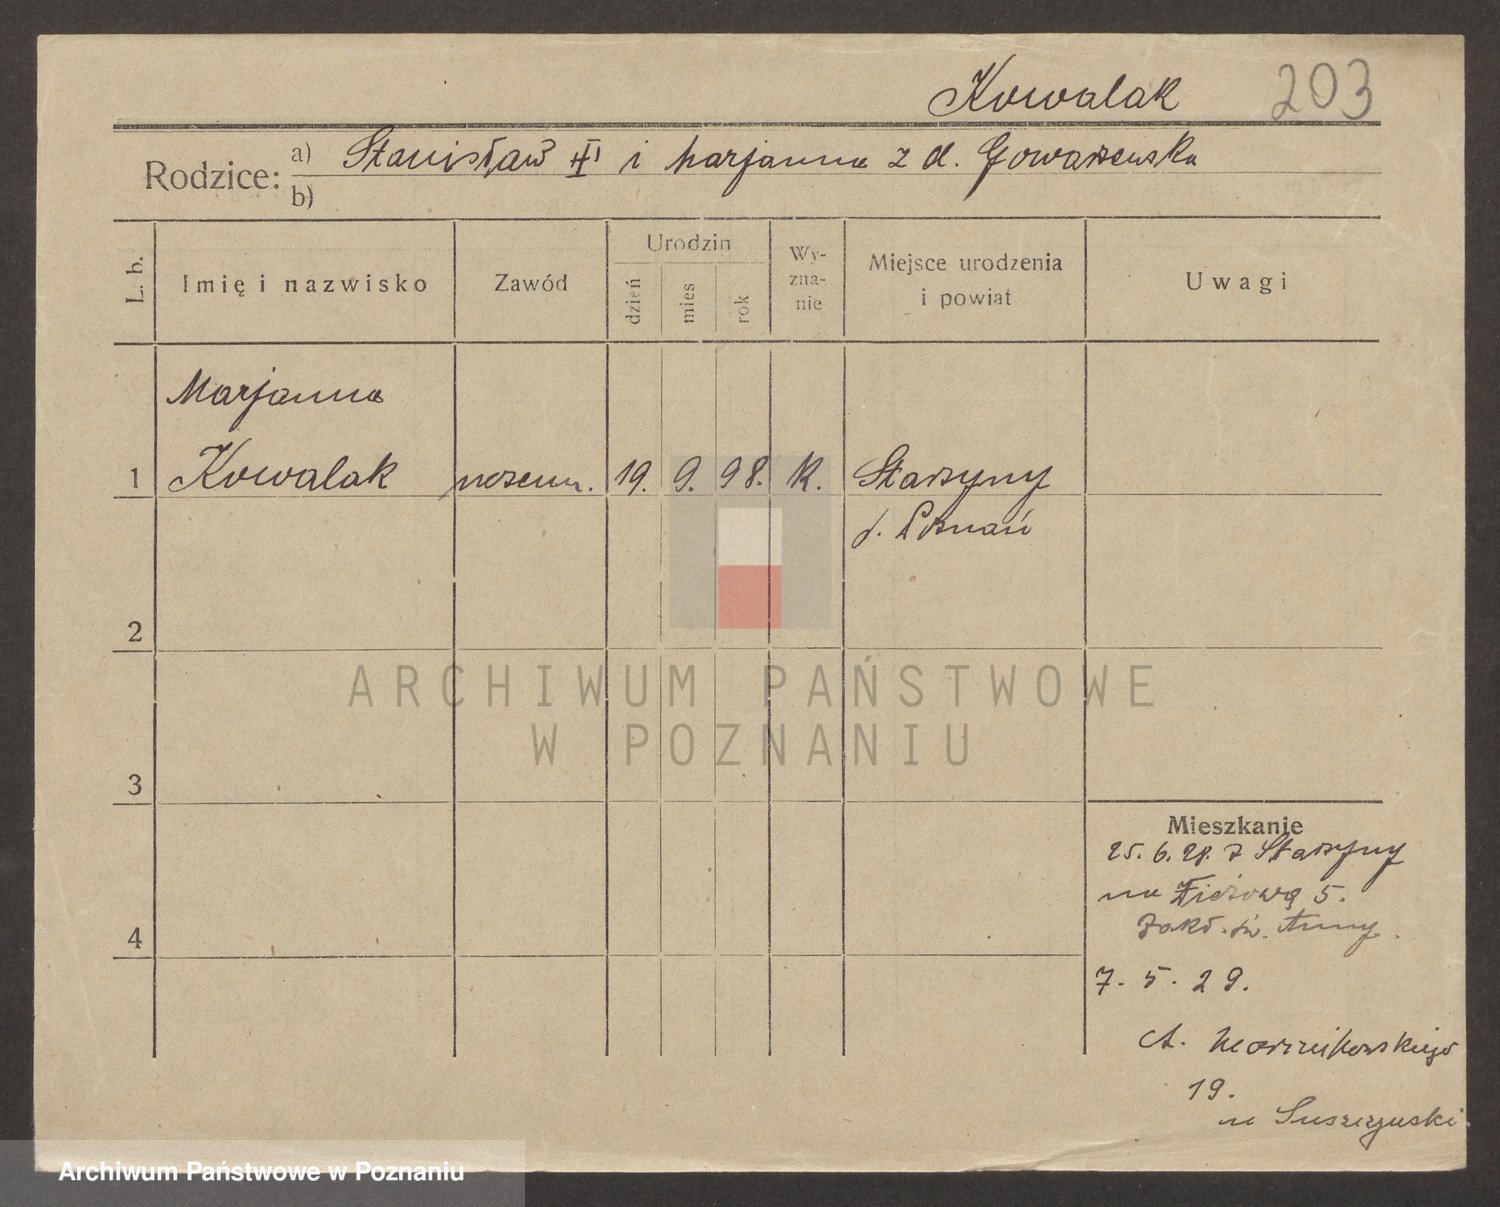 Kowalak 203
Rodzice:
a) Stanisław i Marjanna z d. Gowarzewska
b)
L. b.
Imię i nazwisko
Zawód
Urodzin
dzień
mies
rok
Wy-
zna-
nie
Miejsce urodzenia
i powiat
Uwagi
Marjanna
1 Kowalak 19. 9. 98. K. Starzyny
p. Poznań
2
3
4
Mieszkanie
25. 6. 28. z Starzyny
na 5.
Zakł. św. Anny.
7. 5. 29.
A.
19.
ARCHIWUM PAŃSTWOWE
W POZNANIU
Archiwum Państwowe w Poznaniu